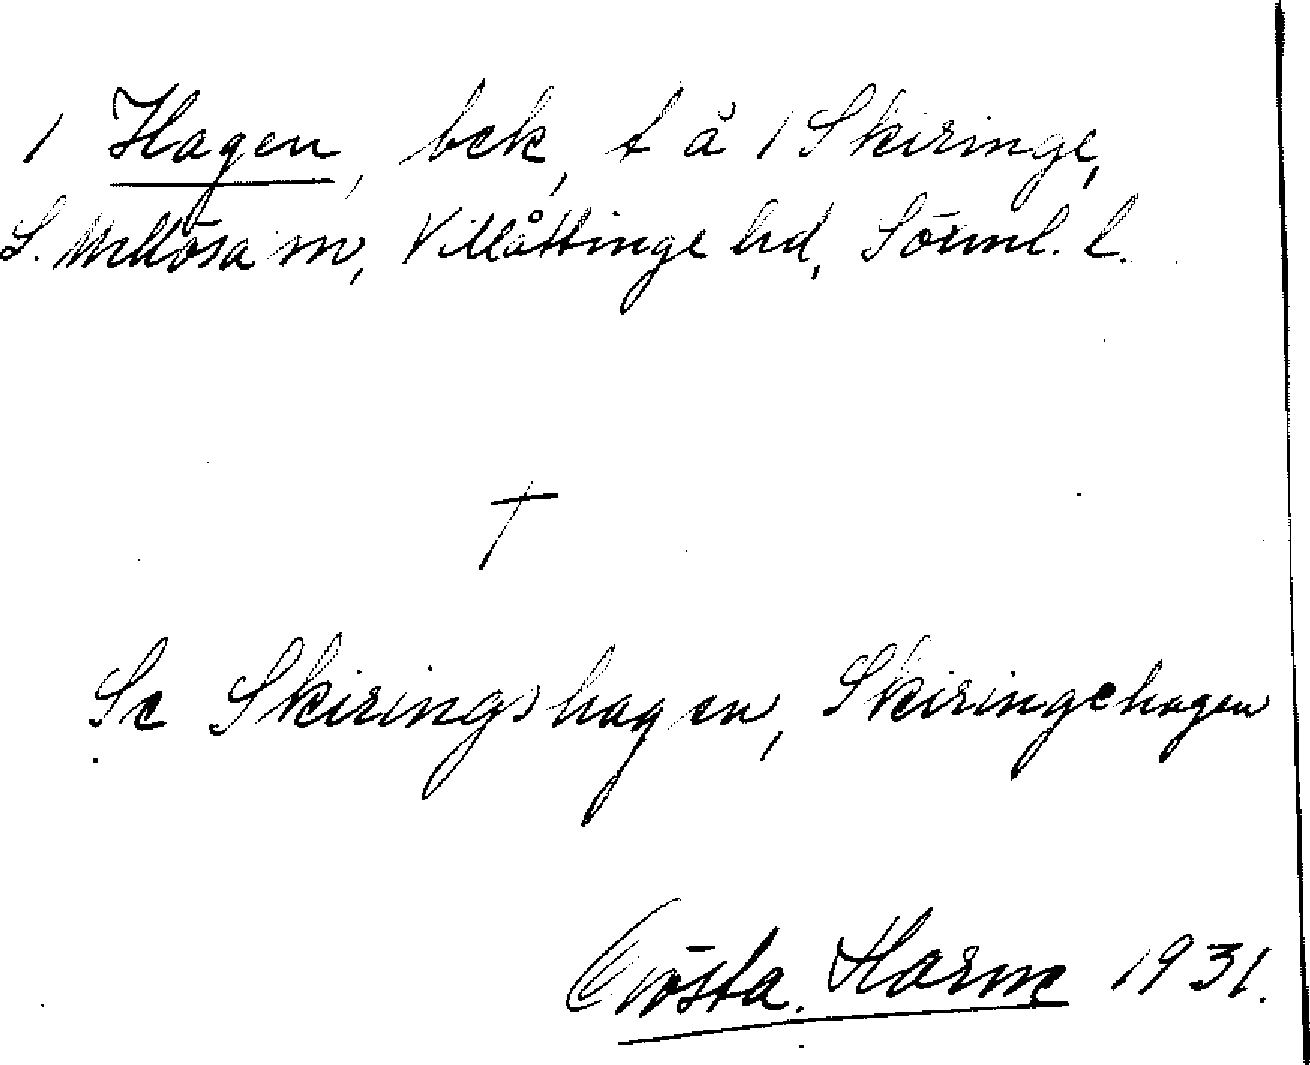 1 Hagen, bek, t å 1 Skiringe,
L. Mellösa sn, Villåttinge hd, Sörml. l.
†
Se Skiringshagen, Skiringehagen
Gösta. Harme 1931.